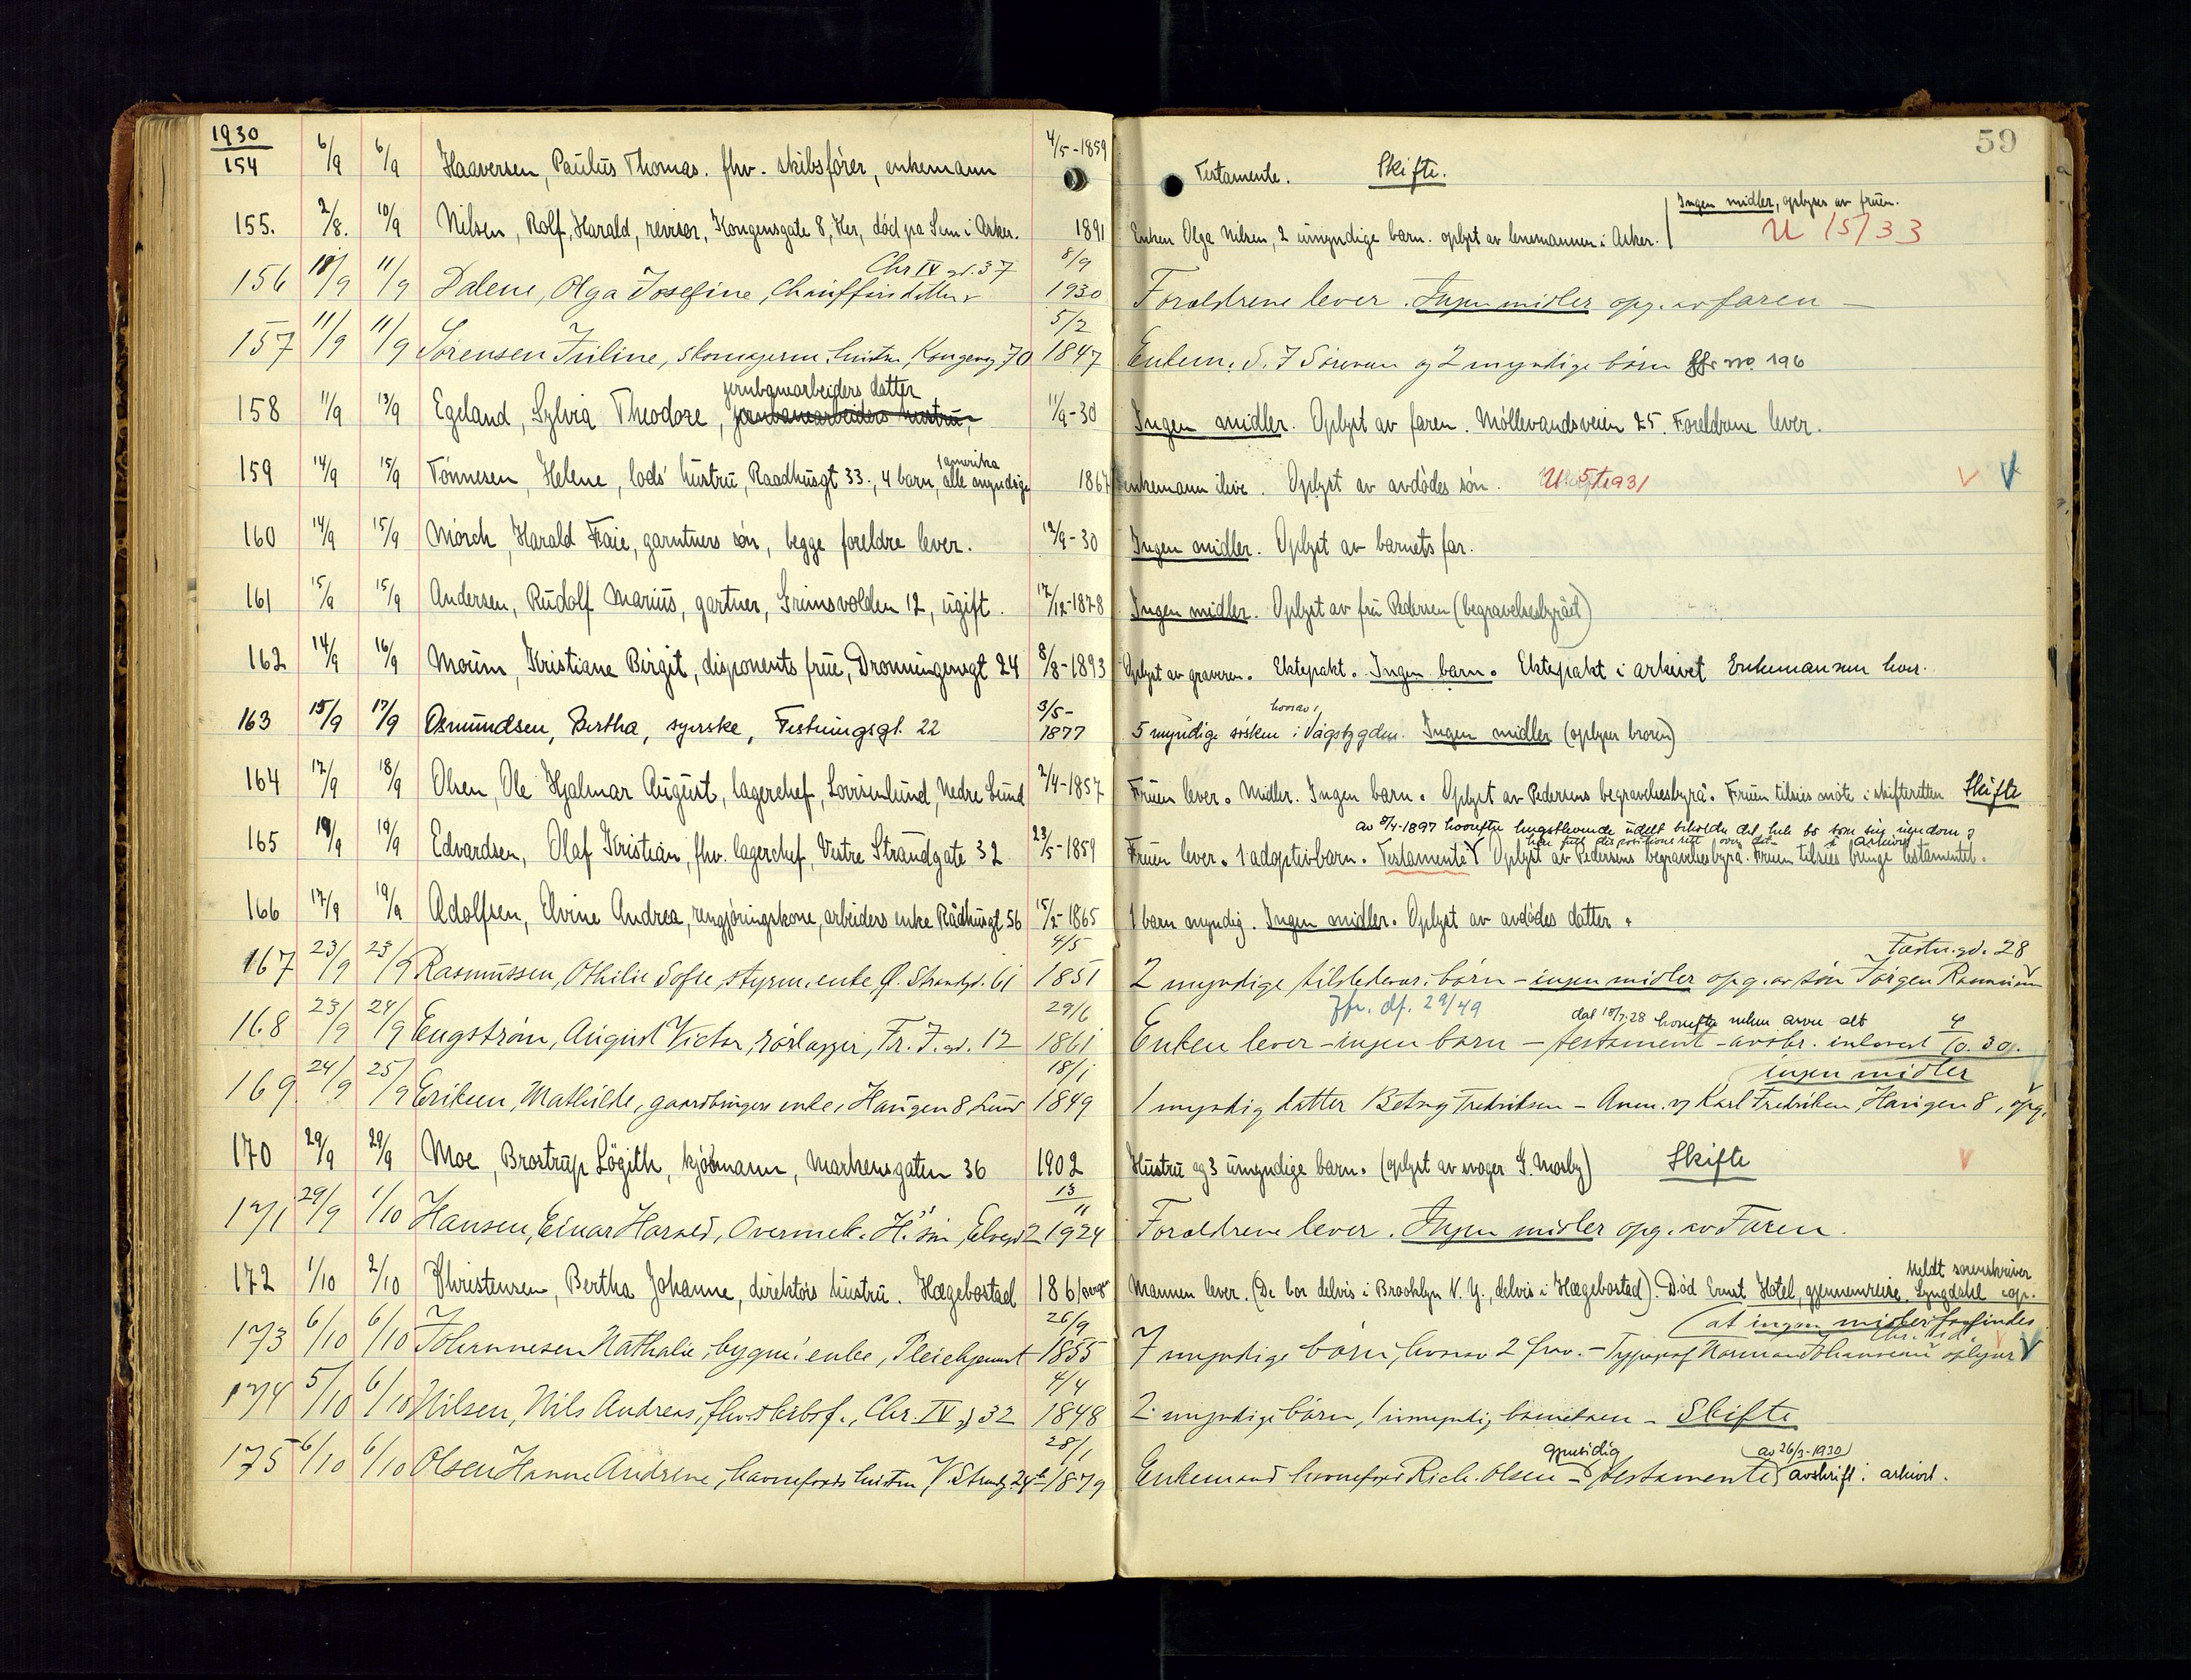 1930
59
154 6/9 6/9 Haaversen, Paulus Thomas. fhv. skibsfører, enkemann 4/5-1859 Testamente. Skifte.
Ingen midler, oplyses av fruen.
155. 2/8. 10/9 Nilsen, Rolf, Harald, revisor, Kongensgate 8, Her, død pa Sem i Asker. 1891 Enken Olga Nilsen, 2 umyndige barn. oplyst av lensmannen i Asker. U 15/33
Chr IV gd. 37 8/9
156 10/9 11/9 Dalene, Olga Josefine, Chaufførs datter 1930 Forældrene lever. Ingen midler opg. av faren —
5/2
157 11/9 11/9 Sørensen Juline, skomagerm. hustru, Kongensg 70 1847 Enkem. S. J Sørensen og 2 myndige børn jfr no. 196
jernbanearbeiders datter
158 11/9 13/9 Egeland, Sylvia Theodore, jernbanearbeiders hustru, 11/9-30 Ingen midler. Oplyst av faren. Møllevandsveien 25. Foreldrene lever.
1 amerika
159 14/9 15/9 Tønnesen, Helene, lods' hustru, Raadhusgt 33., 4 barn, alle myndige 1867 enkemann ilive. Oplyst av avdødes søn. U 5/1931
160 14/9 15/9 Mørch, Harald Faie, garntners søn, begge foreldre lever. 12/9-30 Ingen midler. Oplyst av barnets far.
161 15/9 15/9 Andersen, Rudolf Marius, gartner, Grimsvolden 12, ugift. 17/12-1878 Ingen midler. Oplyst av fru Pedersen (begravelsesbyrået)
162 14/9 16/9 Moum, Kristiane Birgit, disponents frue, Dronningensgt 24 8/8-1893 Oplyst av graveren. Ektepakt. Ingen barn. Ektepakt i arkivet Enkemannen hver.
hvorav 1
163 15/9 17/9 Osmundsen, Bertha, syerske, Festningsgt. 22 3/5-1877 5 myndige søsken i Vågsbygden. Ingen midler (oplyser broren)
164 17/9 18/9 Olsen, Ole Hjalmar August, lagerchef, Lovisenlund, Nedre Lund 2/4-1857 Fruen lever. Midler. Ingen barn. Oplyst av Pedersens begravelsesbyrå. Fruen tilsies møte i skifteretten Skifte
av 5/4-1897 hvorefter lengstlevende udelt beholder det hele bo som sin eiendom og
har full disposisjonsrett over det. i Arkivet
165 19/9 19/9 Edvardsen, Olaf Kristian, fhv. lagerchef, Vestre Strandgate 32 23/5-1859 Fruen lever. 1 adoptivbarn. Testamente Oplyst av Pedersens begravelsesbyrå. Fruen tilsies bringe testamentet.
166 17/9 19/9 Adolfsen, Elvine Andrea, rengjøringskone, arbeiders enke Rådhusgt 56 15/2-1865 1 barn myndig. Ingen midler. Oplyst av avdødes datter.
4/5 Fæstn.gd. 28
167 23/9 23/9 Rasmussen, Othilie Sofie, styrm. enke Ø. Strandgd. 61 1851 2 myndige tilstedevær. børn - ingen midler opg. av søn Jørgen Rasmussen
29/6 Jfr. df. 29/49 dat 15/7.28 hvorefter enken arver alt
168 23/9 24/9 Engstrøm, August Victor, rørlægger, Fr. F. gd. 12 1861 Enken lever - ingen børn - testament - avskr. inlevert 4/10.30.
18/1 ingen midler
169 24/9 25/9 Eriksen, Mathilde, gaardbrugers enke, Haugen 8 Lund 1849 1 myndig datter Betsy Fredriksen - Anm. v/ Karl Fredriksen, Haugen 8, opg.
170 29/9 29/9 Moe, Brostrup Løgith, kjøbmann, Markensgaten 36 1902 Hustru og 3 umyndige barn. (oplyst av svoger G. Mosby) Skifte
13/11
171 29/9 1/10 Hansen, Einar Harald, Overmek. H.'s søn, Elvegd 2 1924 Forældrene lever. Ingen midler opg. av Faren.
meldt sorenskriver
172 1/10 2/10 Christensen, Bertha Johanne, direktørs hustru. Hægebostad 1861 Mannen lever. (De bor delvis i Brooklyn N. Y., delvis i Hægebostad). Død Ernst Hotel, gjennemreise. Lyngdahl opl.
26/9 (at ingen midler forefindes
173 6/10 6/10 Johannesen Nathalie, bygm. enke, Pleiehjemmet 1855 7 myndige børn, hvorav 2 frav. - Typograf Norman Johannesen oplyser
4/4
174 5/10 6/10 Nilsen, Nils Andreas, fhv. skibsf., Chr. IV gd 32 1848 2 myndige børn, 1 umyndig barnebarn - Skifte
28/1 gjensidig (av 26/3-1930)
175 6/10 6/10 Olsen Hanne Andrine, havnefogds hustru V. Strandg. 24 1879 Enkemand havnefogd Rich. Olsen - testamente avskrift i arkivet.